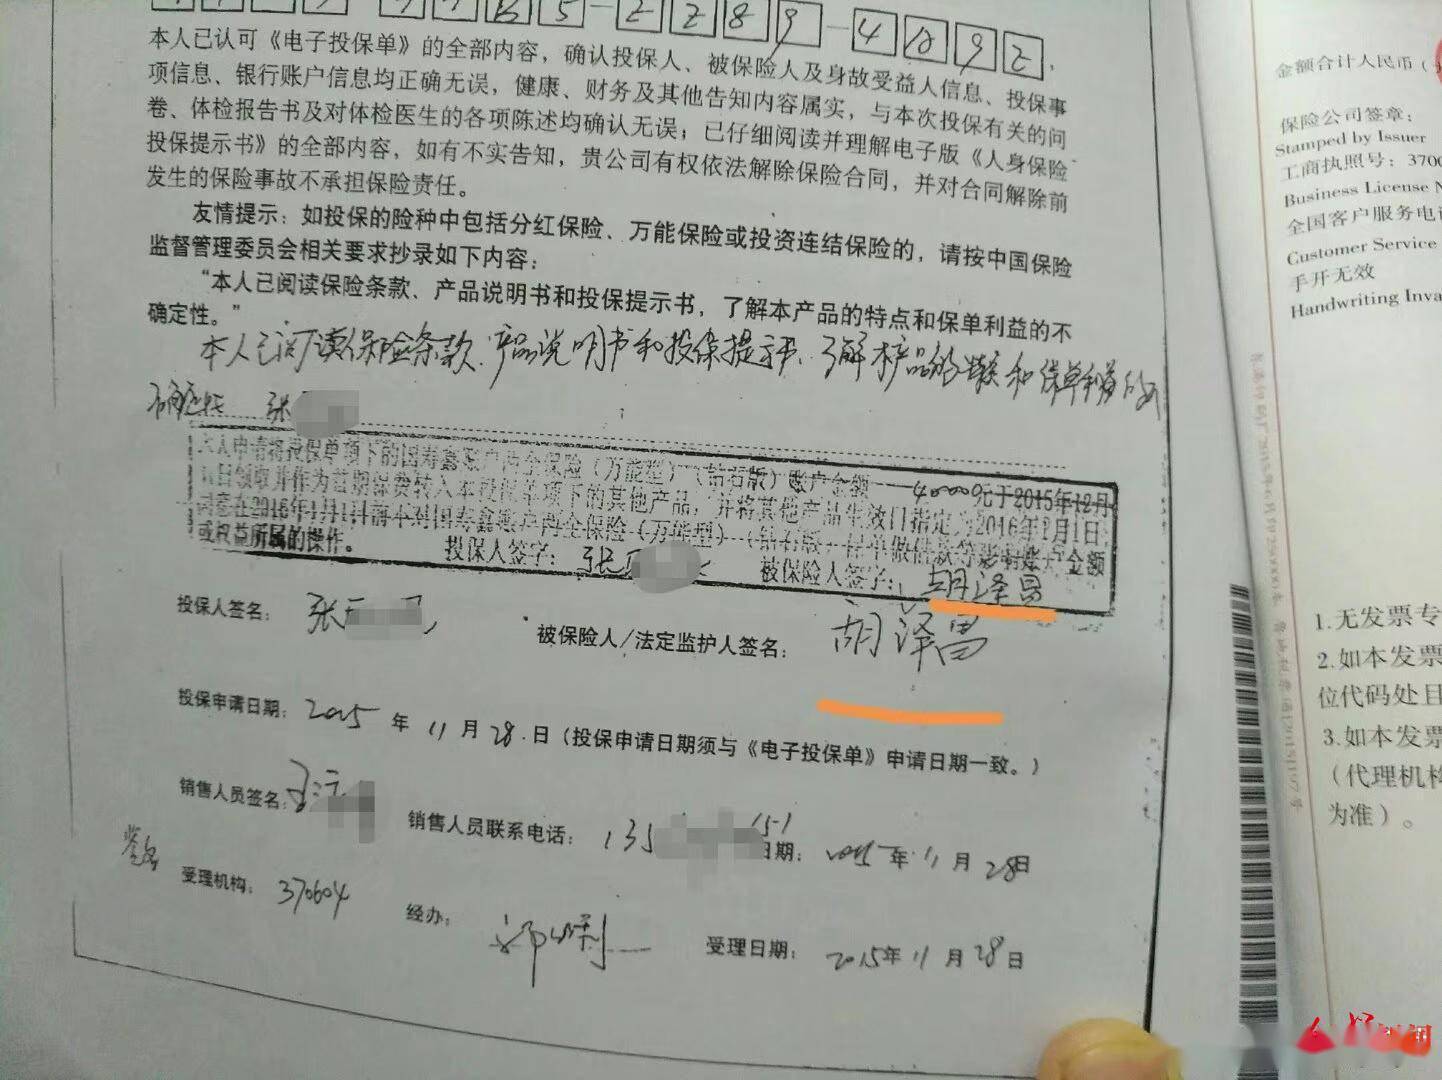 本人已认可《电子投保单》的全部内容，确认投保人、被保险人及身故受益人信息、投保事
项信息、银行账户信息均正确无误，健康、财务及其他告知内容属实，与本次投保有关的问
卷、体检报告书及对体检医生的各项陈述均确认无误；已仔细阅读并理解电子版《人身保险
投保提示书》的全部内容，如有不实告知，贵公司有权依法解除保险合同，并对合同解除前
发生的保险事故不承担保险责任。
友情提示：如投保的险种中包括分红保险、万能保险或投资连结保险的，请按中国保险
监督管理委员会相关要求抄录如下内容：
“本人已阅读保险条款、产品说明书和投保提示书，了解本产品的特点和保单利益的不
确定性。”
本人已阅读保险条款、产品说明书和投保提示书、了解本产品的特点和保单利益的不
确定性 张
本人申请将投保单项下的国寿鑫账户两全保险（万能型）（钻石版）账户金额 40000元于2015年12月
日领取并作为首期保费转入本投保单项下的其他产品，并将其他产品生效日指定为2016年1月1日；
同意在2016年1月1日前不对国寿鑫账户两全保险（万能型）（钻石版）保单做借款等影响账户金额
或权益所属的操作。 投保人签字：张 被保险人签字：胡泽昌
投保人签名： 张 被保险人/法定监护人签名： 胡泽昌
投保申请日期：2015 年 11 月 28 日（投保申请日期须与《电子投保单》申请日期一致。）
销售人员签名： 销售人员联系电话： 135 151 日期： 2015年 11 月 28日
受理机构： 370604 经办： 受理日期： 2015年 11 月 28 日
金额合计人民币（
保险公司签章：
Stamped by Issuer
工商执照号：3700
Business License N
全国客户服务电话
Customer Service
手开无效
Handwriting Inva
1.无发票专
2.如本发票
位代码处且
3.如本发票
（代理机构
为准）。